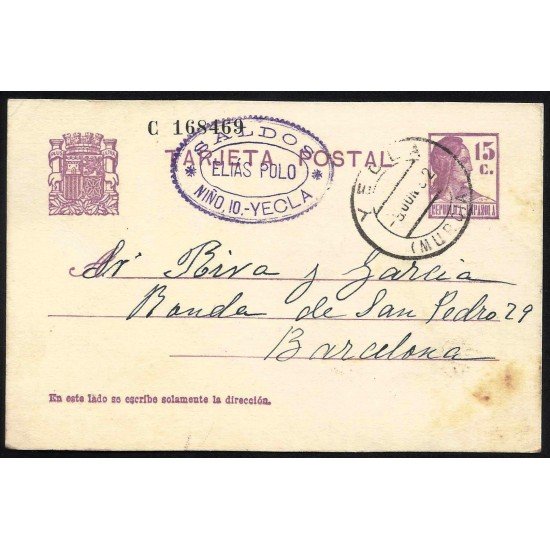 C 168469
TARJETA POSTAL
SALDOS
ELIAS POLO
NIÑO 10.-YECLA
15 c.
REPUBLICA ESPAÑOLA
YECLA
(MURCIA)
A Sr Riva y Garcia
Ronda de San Pedro 29
Barcelona
En este lado se escribe solamente la dirección.